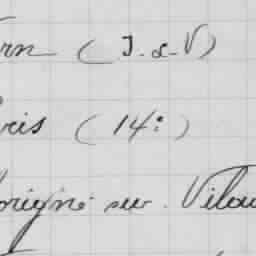 ern (I-&-V)
ris (14e)
origné sur Vilai